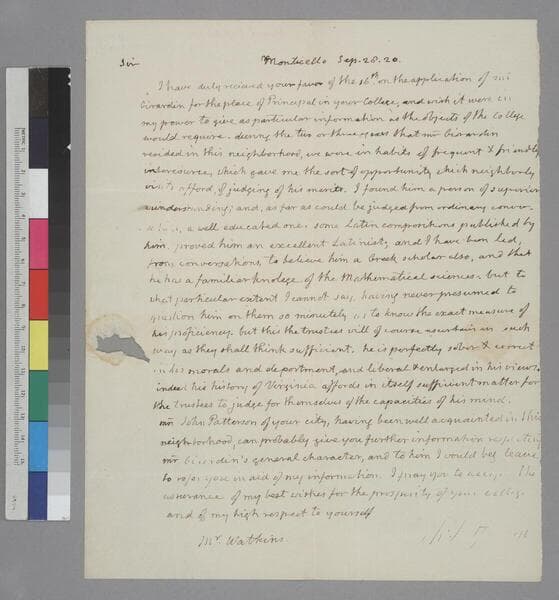 Sir Monticello Sep. 28. 20.
I have duly recieved your favor of the 16th on the application of mr
Girardin for the place of Principal in your College, and wish it were in
my power to give as particular information as the objects of the College
would require. during the two or three years that mr Girardin
resided in this neighborhood, we were in habits of frequent & friendly
intercourse, which gave me the sort of opportunity which neighborly
visits afford, of judging of his merits. I found him a person of superior
understanding; and, as far as could be judged from ordinary conver-
a well educated one. some Latin compositions published by
him, proved him an excellent Latinist, and I have been led,
from conversations, to believe him a Greek scholar also, and that
he has a familiar knolege of the Mathematical sciences. but to
what particular extent I cannot say, having never presumed to
question him on them so minutely as to know the exact measure of
his proficiency. but this the trustees will of course ascertain in such
way as they shall think sufficient. he is perfectly sober & correct
in his morals and deportment, and liberal & enlarged in his views.
indeed his history of Virginia affords in itself sufficient matter for
the trustees to judge for themselves of the capacities of his mind.
mr John Patterson of your city, having been well acquainted in this
neighborhood, can probably give you further information respecting
mr Girardin's general character, and to him I would beg leave
to refer you in aid of my information. I pray you to accept the
assurance of my best wishes for the prosperity of your college
and of my high respect to yourself
Mr. Watkins.